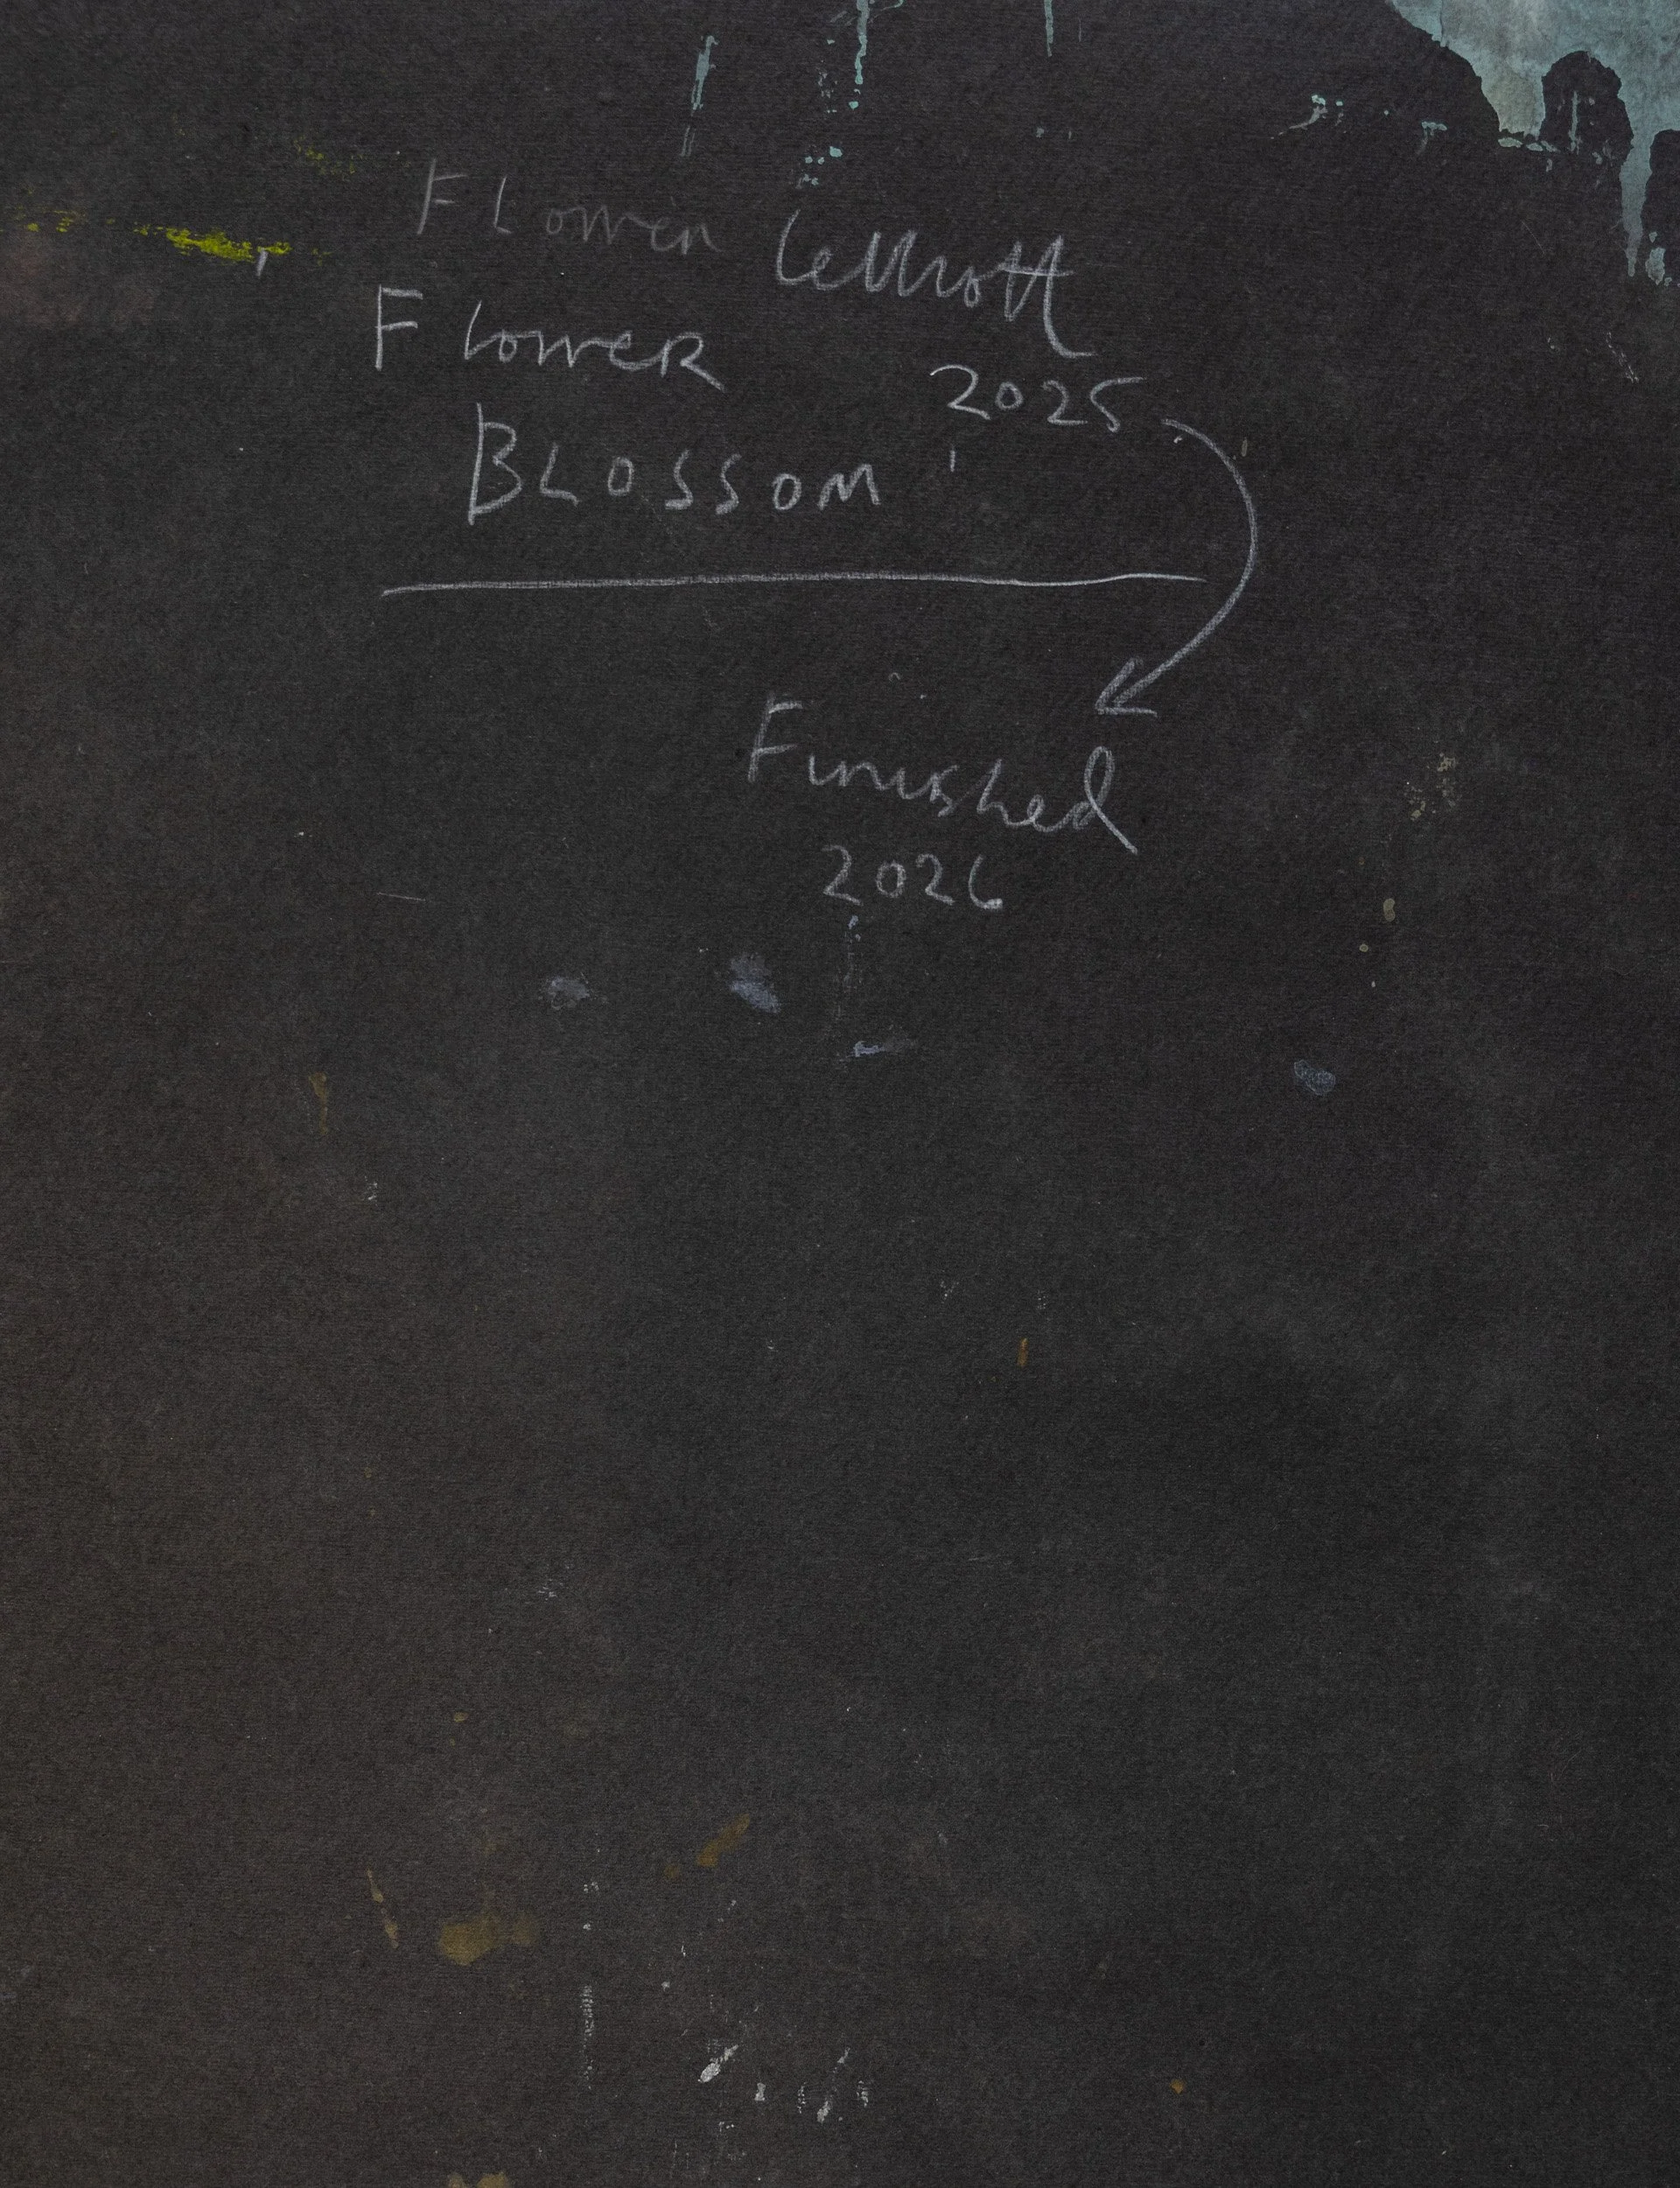 Flower
FLOWER
BLOSSOM
2025
Finished
2026